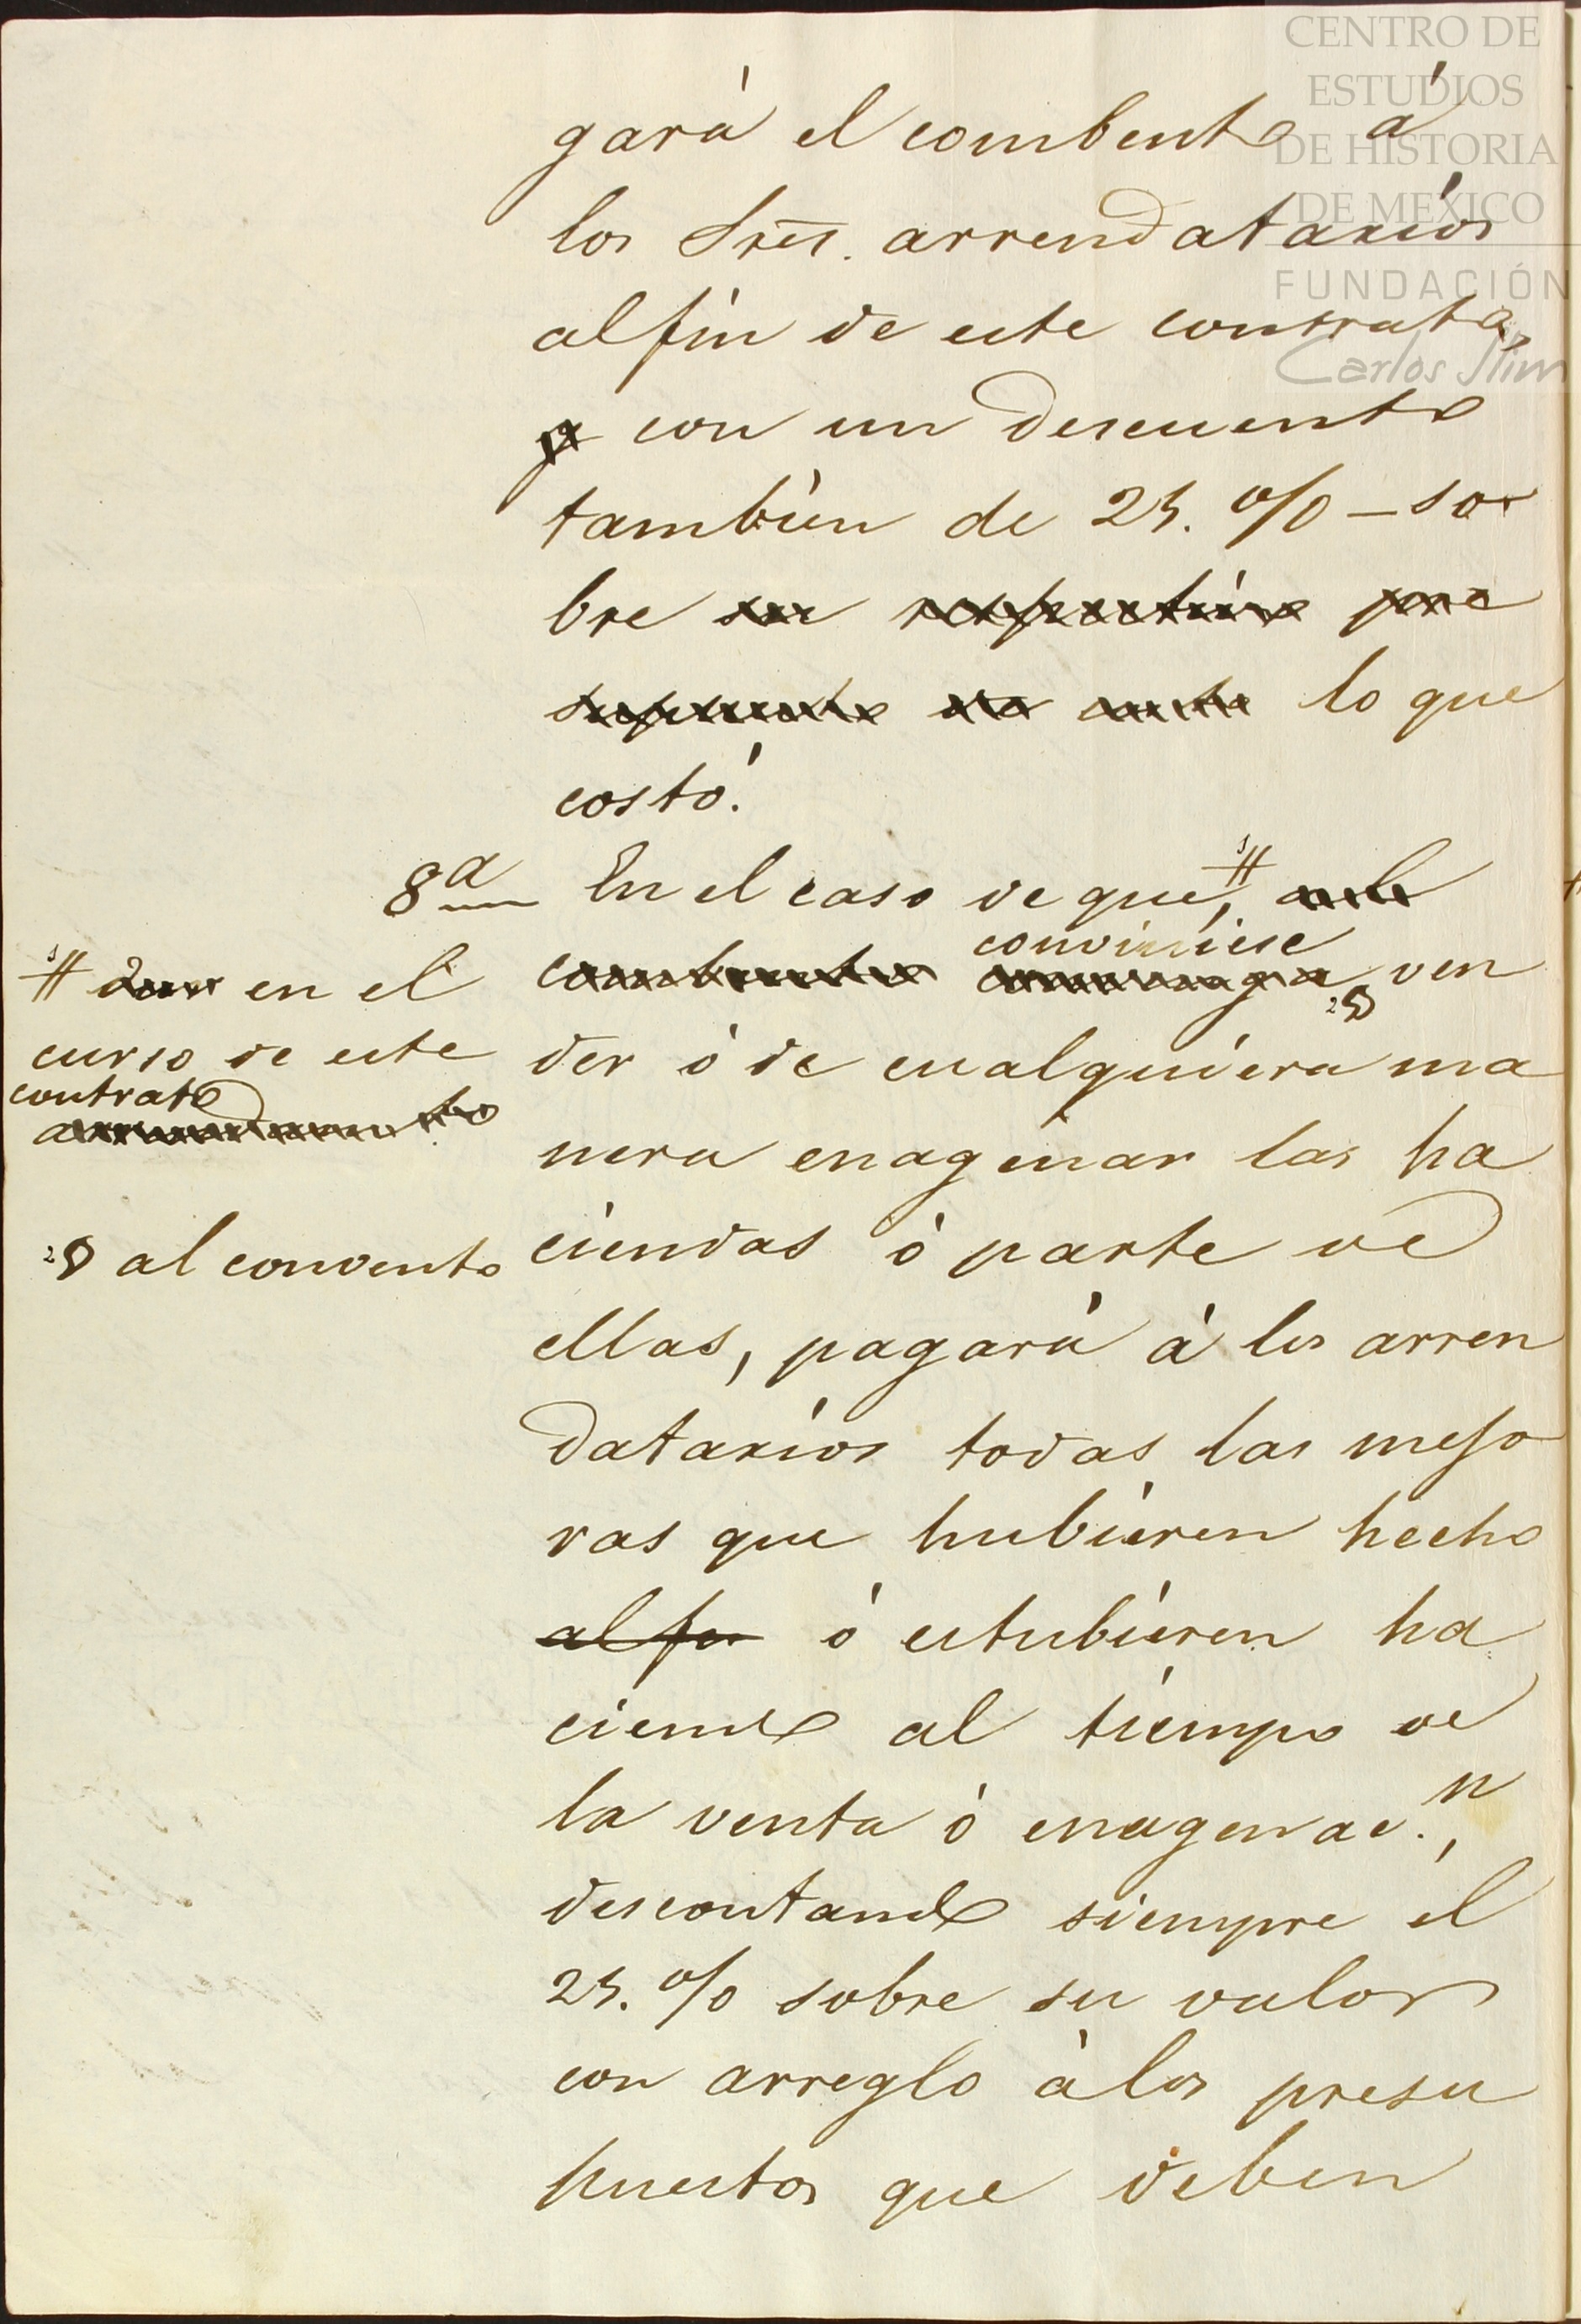 CENTRO DE
ESTUDIOS
DE HISTORIA
DE MÉXICO
FUNDACIÓN
Carlos Slim
gará el combento á
los Sres. arrendatarios
al fin de este contrato,
y con un descuento
tambien de 25. % - so
bre su respectivo pre
supuesto lo que
costó.
8a En el caso de que, # al
combento convenga conviniese ven
der ó de cualquiera ma
nera enagenar las ha
ciendas ó parte de
ellas, pagará á los arren
datarios todas las mejo
ras que hubieren hecho
al fin ó estubieren ha
ciendo al tiempo de
la venta ó enagenac.n,
descontando siempre el
25. % sobre su valor
con arreglo á los presu
puestos que deben
# en el
curso de este
contrato
arrendamiento
al convento